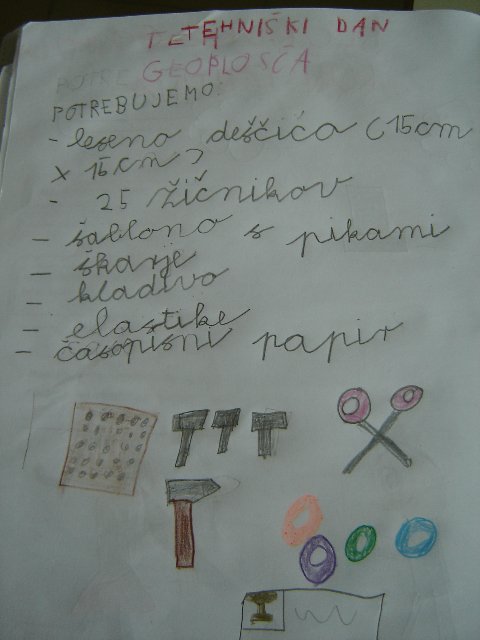 TEHNIŠKI DAN
GEOPLOŠČA
POTREBUJEMO:
- leseno deščico (15cm
x 15cm)
- 25 žičnikov
- šablono s pikami
- škarje
- kladivo
- elastike
- časopisni papir